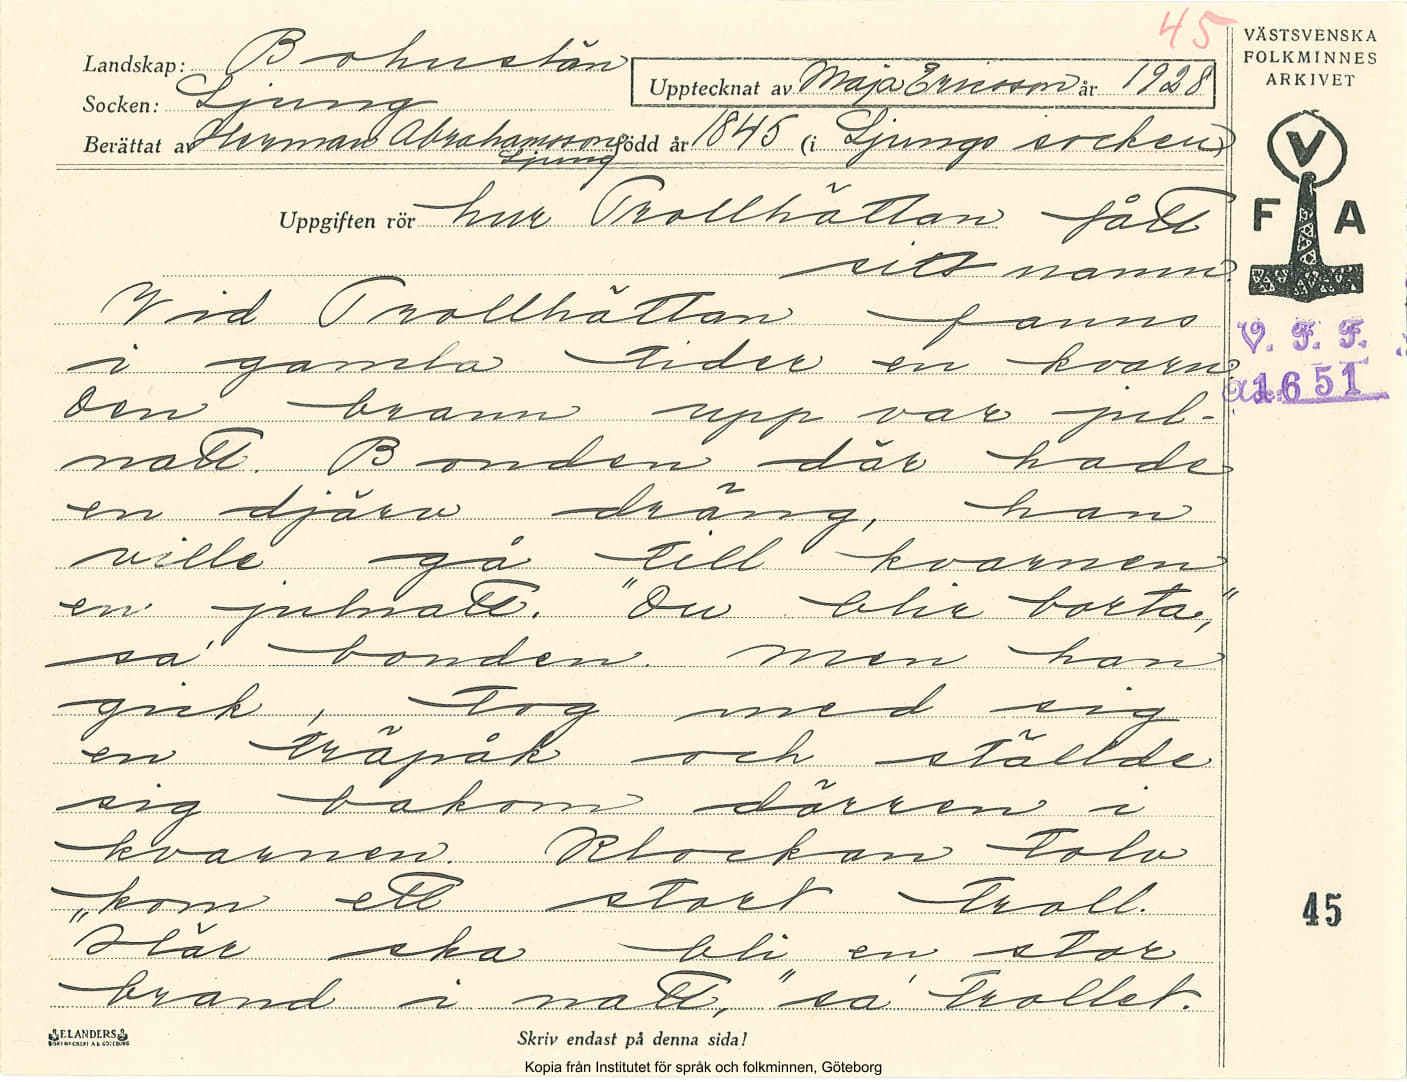 45
VÄSTSVENSKA
FOLKMINNES
ARKIVET
Landskap: Bohuslän
Upptecknat av Maja Ericsson år 1928
Socken: Ljung
Berättat av Herman Abrahamsson född år 1845 (i Ljungs socken)
Ljung
V
F A
Uppgiften rör hur Trollhättan fått
sitt namn.
Vid Trollhättan fanns
i gamla tider en kvarn
Den brann upp var jul-
natt. Bonden där hade
en djärv dräng, han
ville gå till kvarnen
en julnatt. "Du blir borta,"
sa' bonden. Men han
gick, tog med sig
en träpåk och ställde
sig bakom dörren i
kvarnen. Klockan tolv
kom ett stort troll.
"Här ska bli en stor
brand i natt," sa' trollet.
V. F. F.
1651
45
ELANDERS
Skriv endast på denna sida!
Kopia från Institutet för språk och folkminnen, Göteborg